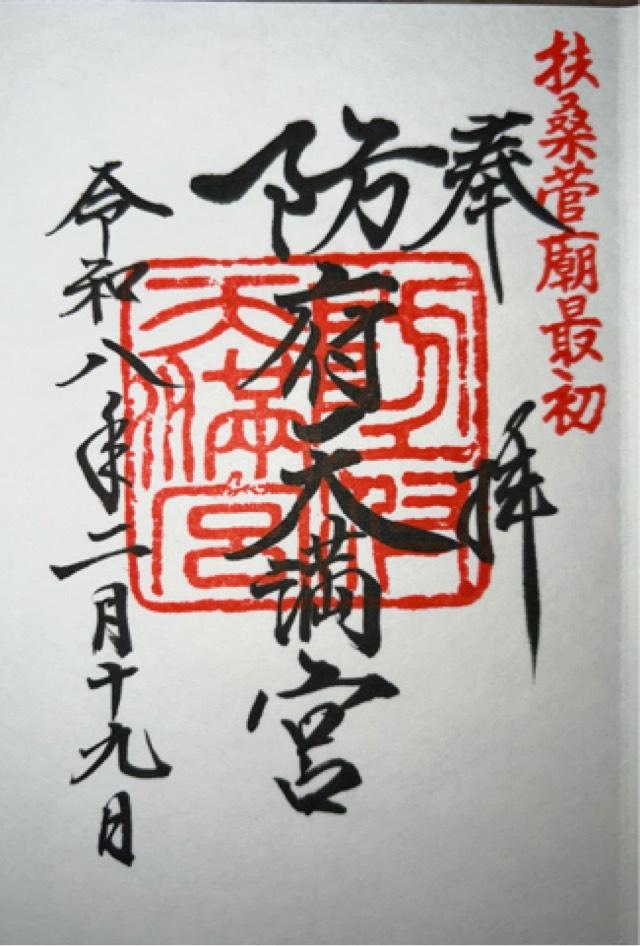 扶桑菅廟最初
奉拝
防府天満宮
令和八年二月十九日